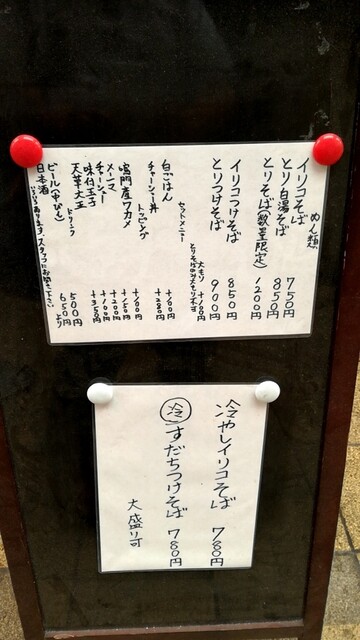 めん類
イリコそば 750円
とり白湯そば 850円
とりそば(数量限定) 1200円
イリコつけそば 850円
とりつけそば 900円
大もり +100円
とりそばのみ大もり不可
セットメニュー
白ごはん +100円
チャーシュー丼 +280円
トッピング
鳴門産ワカメ +100円
メンマ +150円
チャーシュー +200円
味付玉子 +100円
天草大王 +350円
ドリンク
ビール(中びん) 500円
日本酒 650円より
いろいろあります。スタッフにお尋ね下さい
冷やしイリコそば 780円
冷 すだちつけそば 780円
大盛り可